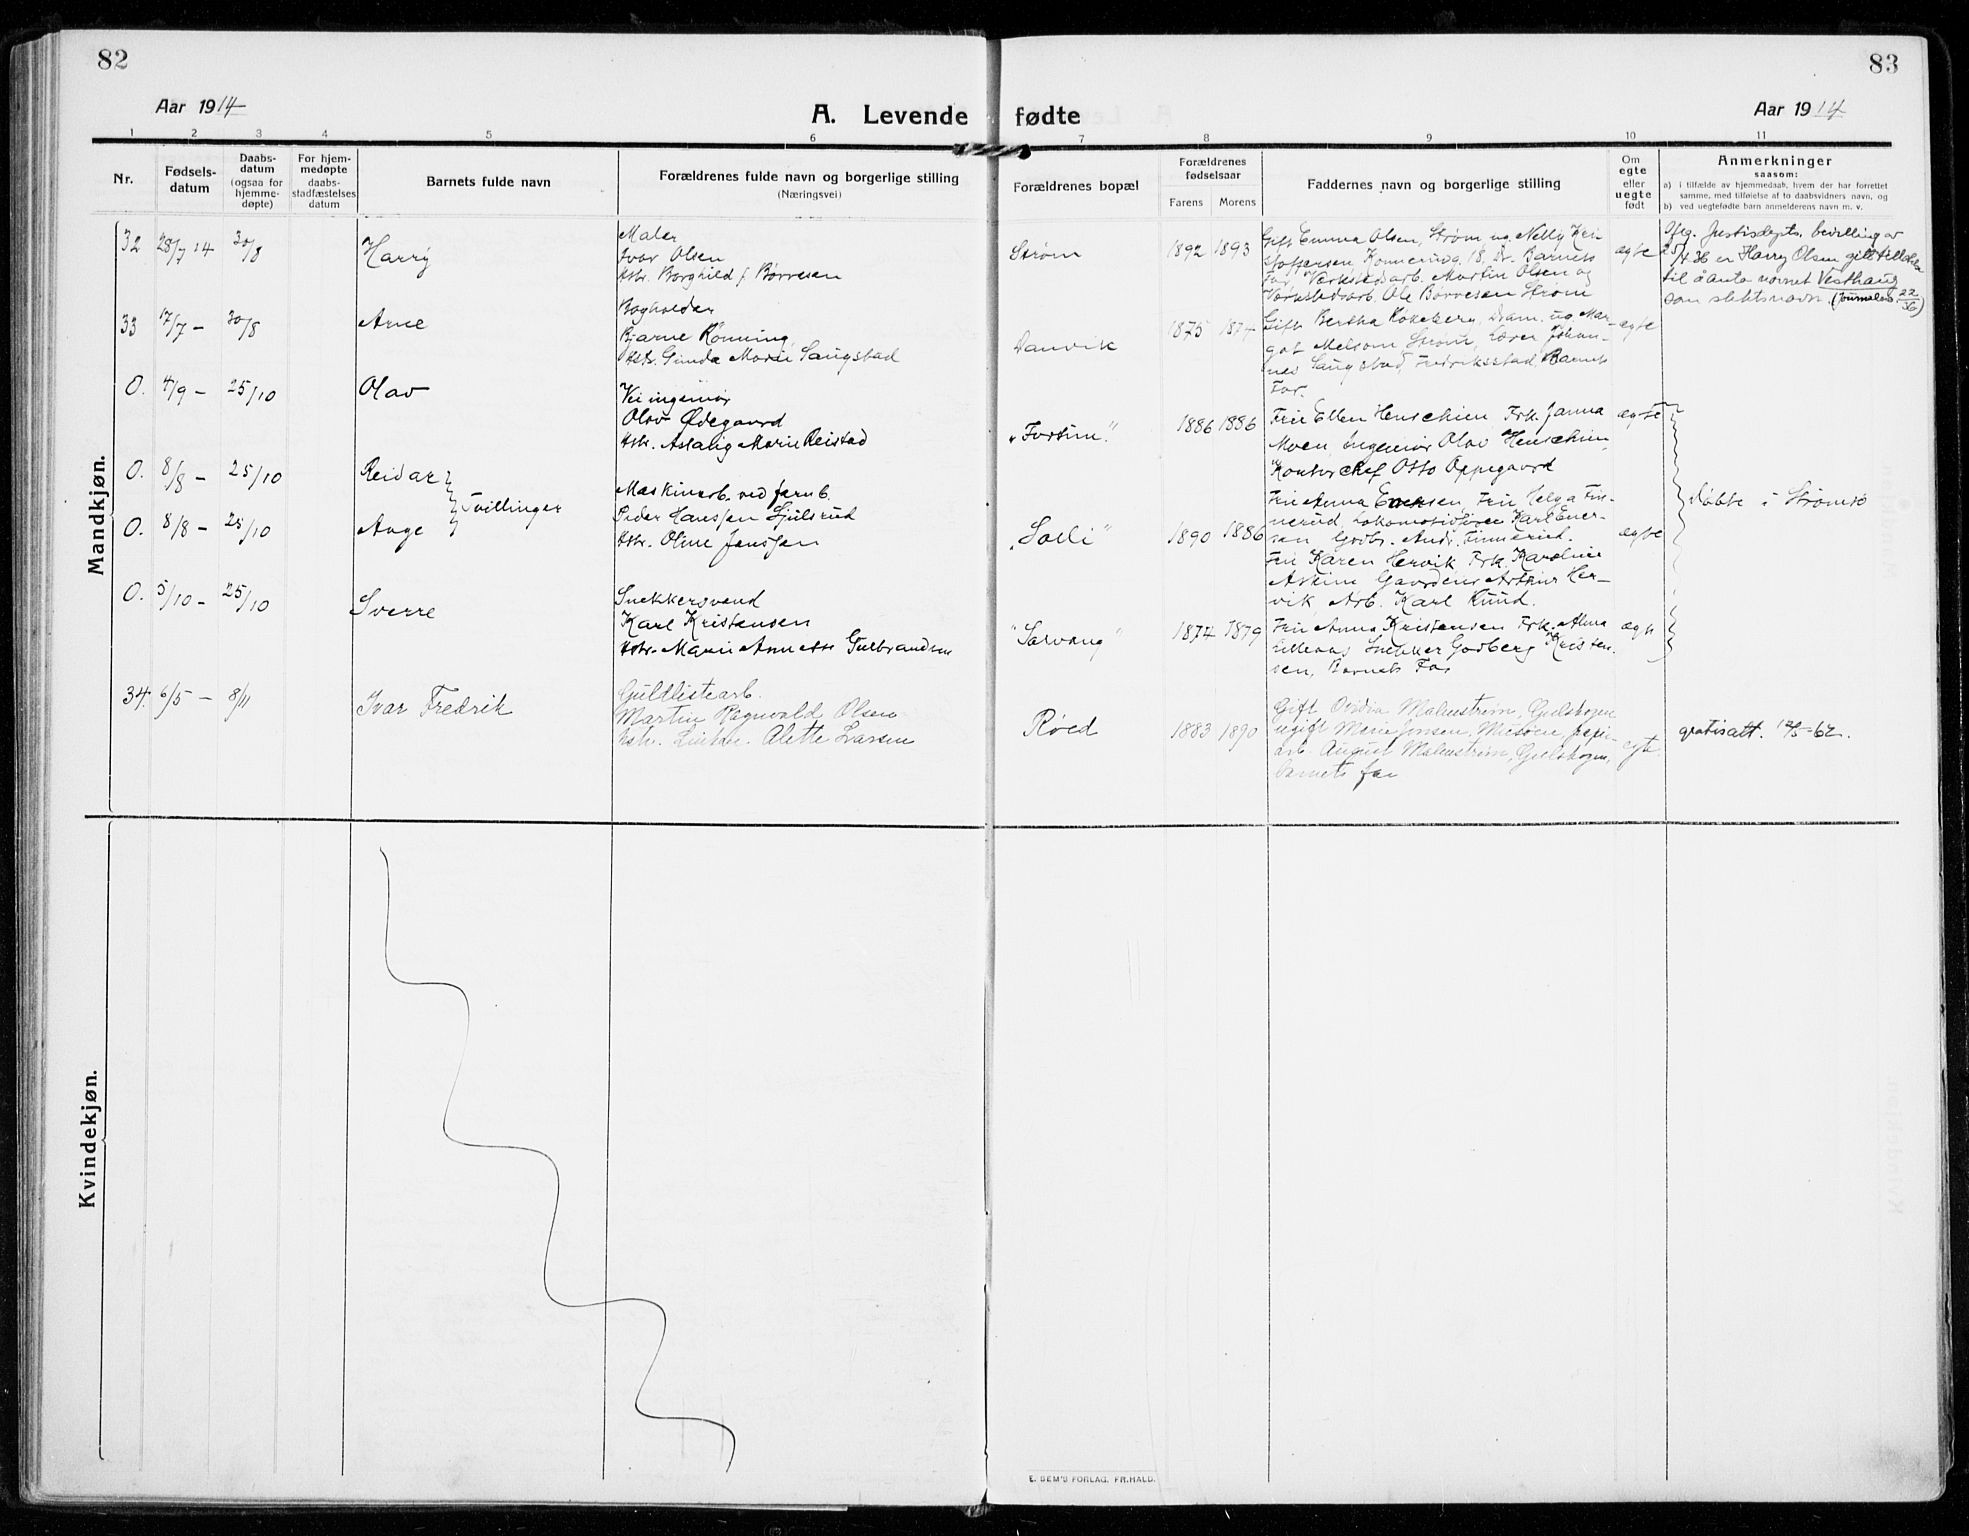 82
83
Aar 1914
A. Levende fødte
Aar 1914
1 2 3 4 5 6 7 8 9 10 11
Nr.
Fødsels-
datum
Daabs-
datum
(ogsaa for
hjemme-
døpte)
For hjem-
medøpte
daabs-
stadfæstelses
datum
Barnets fulde navn
Forældrenes fulde navn og borgerlige stilling
(Næringsvei)
Forældrenes bopæl
Forældrenes
fødselsaar
Farens Morens
Faddernes navn og borgerlige stilling
Om
egte
eller
uegte
født
Anmerkninger
saasom:
a) i tilfælde av hjemmedaab, hvem der har forrettet
samme, med tilføielse af to daabsvidners navn, og
b) ved uegtefødte barn anmelderens navn m. v.
Mandkjøn.
32 28/7 14 30/8 Harry
Maler
Ivar Olsen
Hstr. Borghild f. Børresen
Strøm 1892 1893
Gift Emma Olsen, Strøm og Nelly Kri
stoffersen Konnerudg. 18, Dr. Barnets
Far Værkstedarb. Martin Olsen og
Værkstedsarb. Ole Børresen Strøm
ægte
Ifg. Justisdepts. bevilling av
25/4 36 er Harry Olsen gitt tillatelse
til å anta navnet Vesthaug
som slektsnavn. (Journalnr. 22/36)
33 17/7 – 30/8 Arne
Bogholder
Bjarne Rønning,
Hstr. Gunda Marie Saugstad
Danvik 1875 1874
Gift Bertha Rokeberg, Dram. og Mar-
got Melsom Strøm, Lærer Johan-
nes Saugstad, Fredriksstad, Barnets
Far.
ægte
0. 4/9 – 25/10 Olav
Veiingeniør
Olav Ødegaard
Hstr. Aslaug Marie Reistad
„Fortun.” 1886 1886
Frue Ellen Henschien Frk. Janna
Moen, Ingeniør Olav Henschien,
Kontorchef Otto Oppegaard
ægte
0. 8/8 – 25/10 Reidar
Tvillinger
0. 8/8 – 25/10 Aage
Maskinarb. ved jernb.
Peder Hanssen Ljulsrud
Hstr. Oline Janssen
„Solli” 1890 1886
Frue Anna Enersen, Frue Helga Fin-
nerud, Lokomotivfører Karl Ener-
sen Godbr. Andr. Finnerud.
Fru Karen Hervik Frk. Karoline
Askim Gaardens Arthur Her-
vik, Arb. Karl Ruud.
ægte
Døbte i Strømsø
0. 5/10 – 25/10 Sverre
Snekkersvend
Karl Kristensen
Hstr. Marie Annette Gulbrandsen
“Solvang” 1874 1879
Frue Anna Kristensen Frk. Alma
Lilleaas Snekker Godberg Kristen-
sen, Barnets Far
ægte
34. 6/5 – 8/11 Ivar Fredrik
Guldlistearb.
Martin Ragnvald Olsen
Hstr. Alette Larsen
Røed 1883 1890
Gift Ovidia Malmstrøm, Gulskogen,
ugift Marie Jensen, Musøen, papir-
arb. August Malmstrøm, Gulskogen,
barnets far
egte
gratisatt. 12/5-62.
Kvindekjøn.
E. SEM'S FORLAG, FR.HALD.